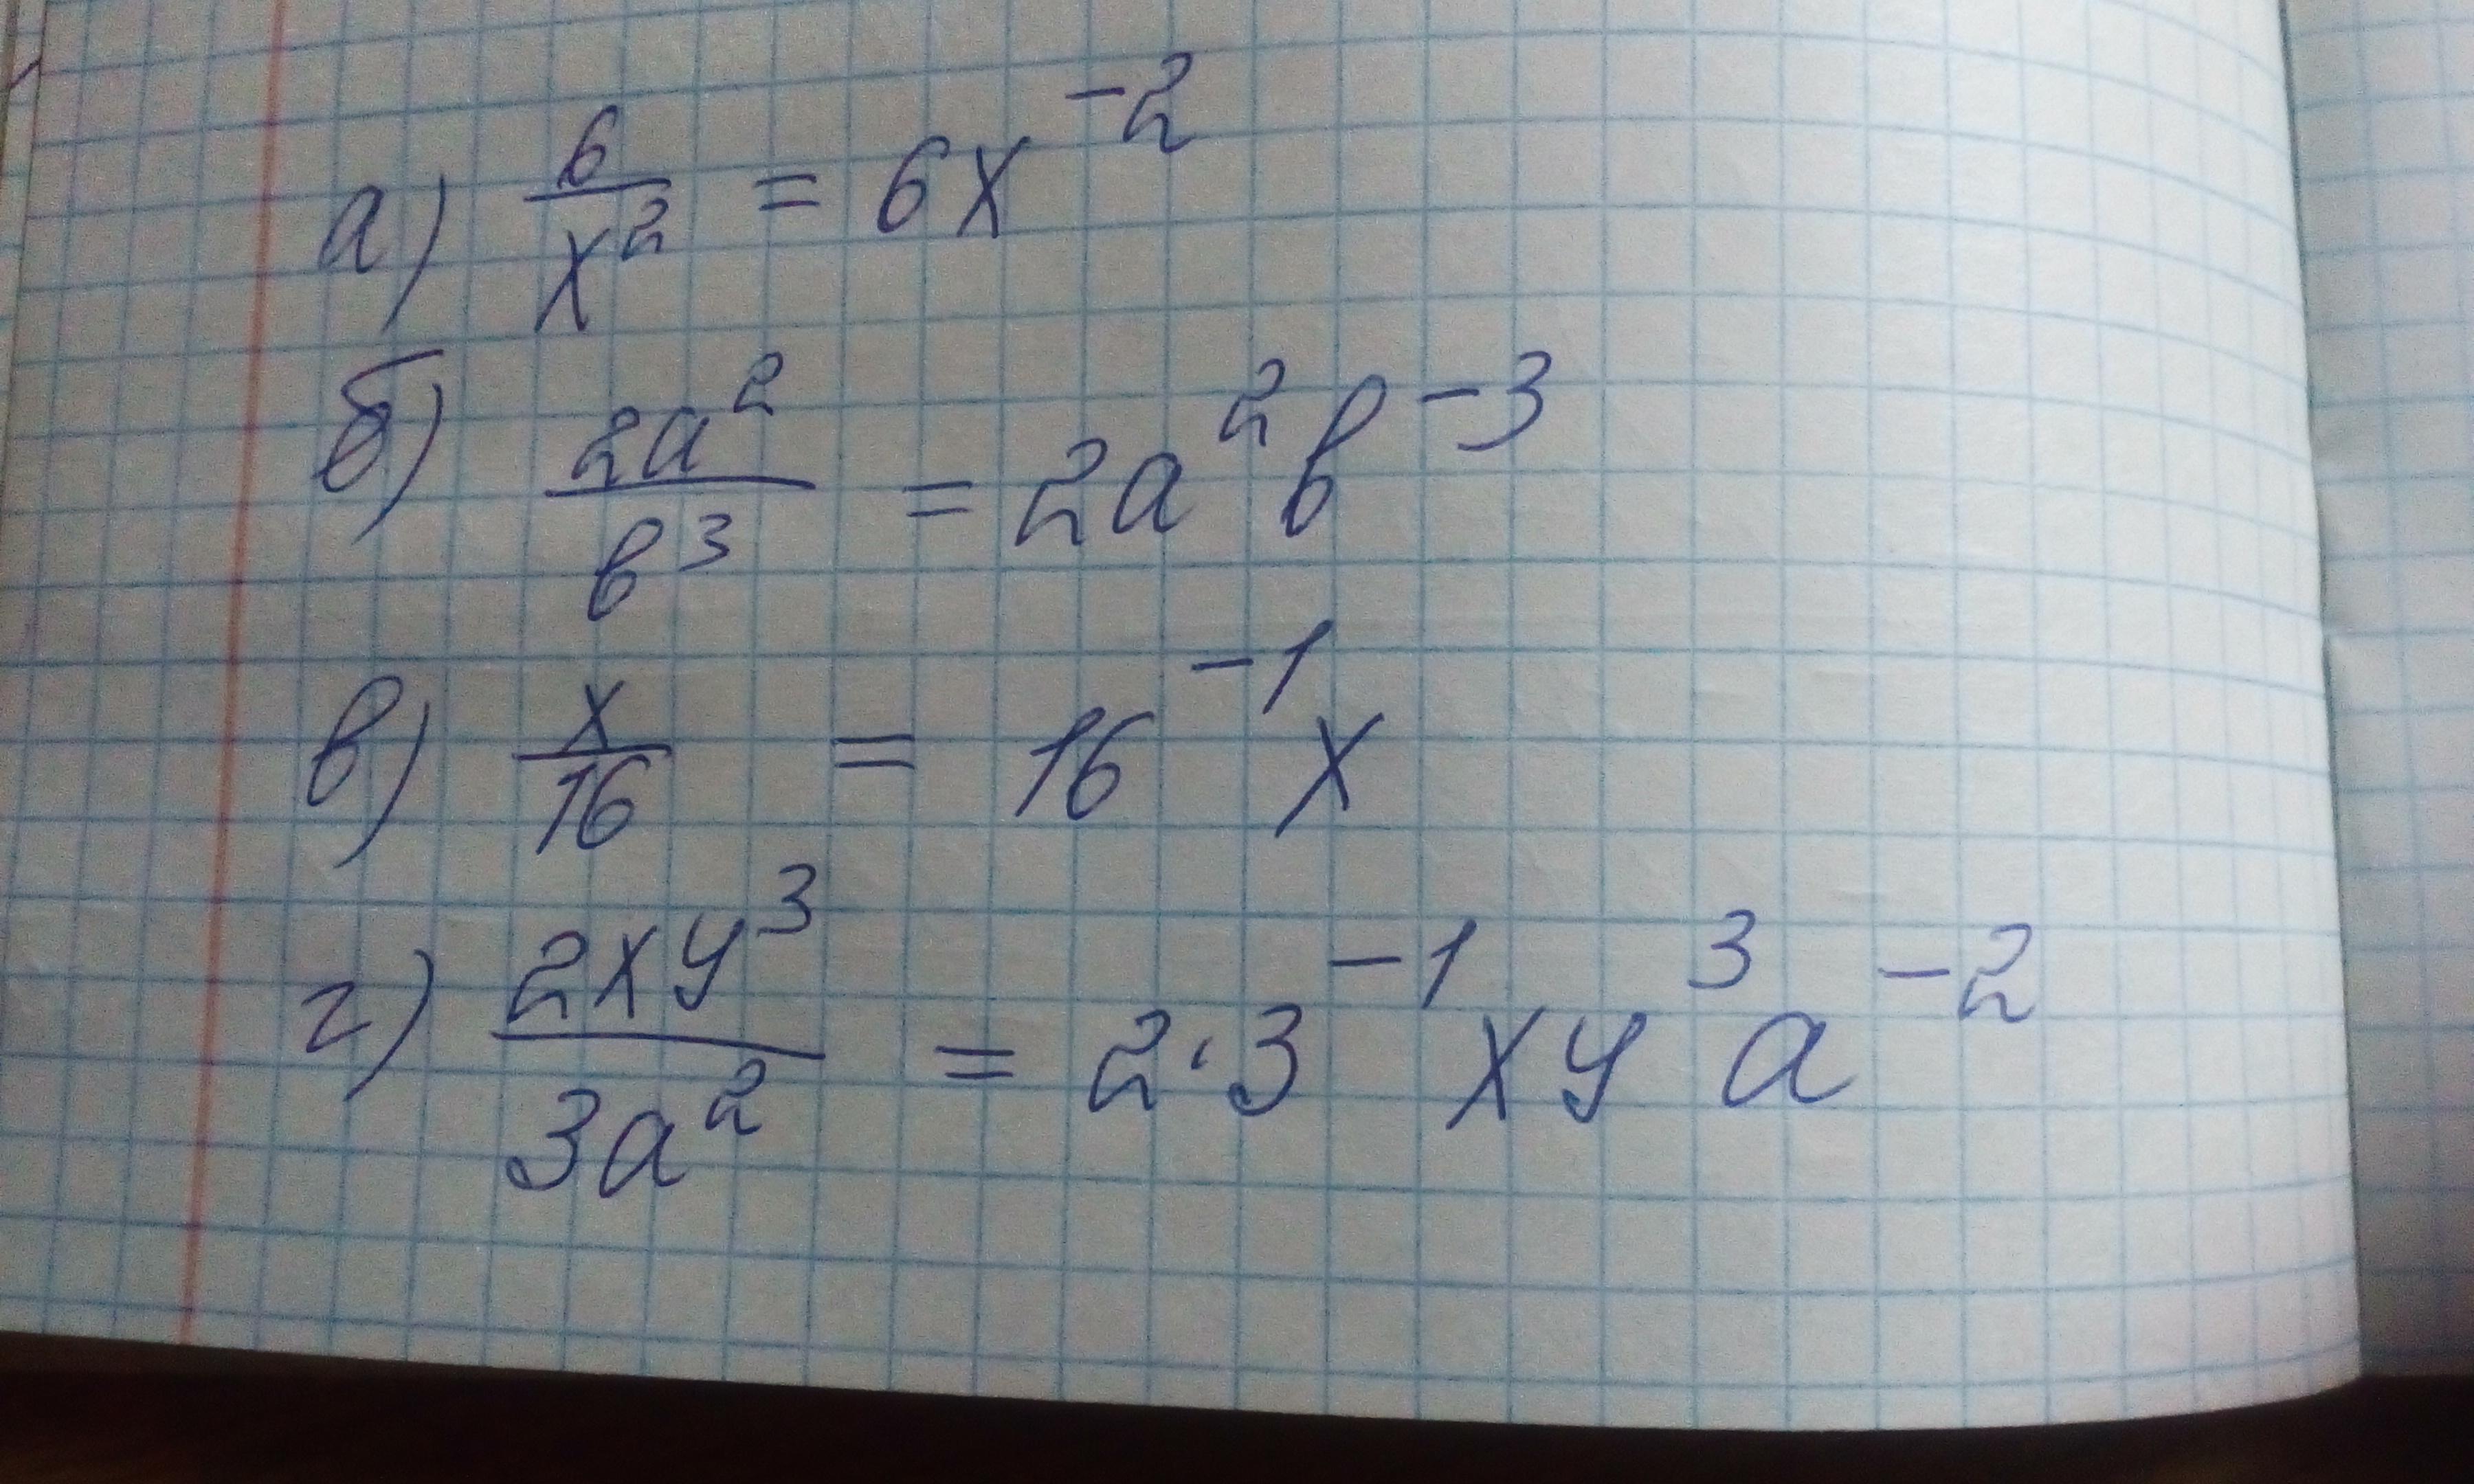 а) 6/x² = 6x⁻²
б) 2a²/b³ = 2a²b⁻³
в) x/16 = 16⁻¹x
г) 2xy³/3a² = 2·3⁻¹xy³a⁻²